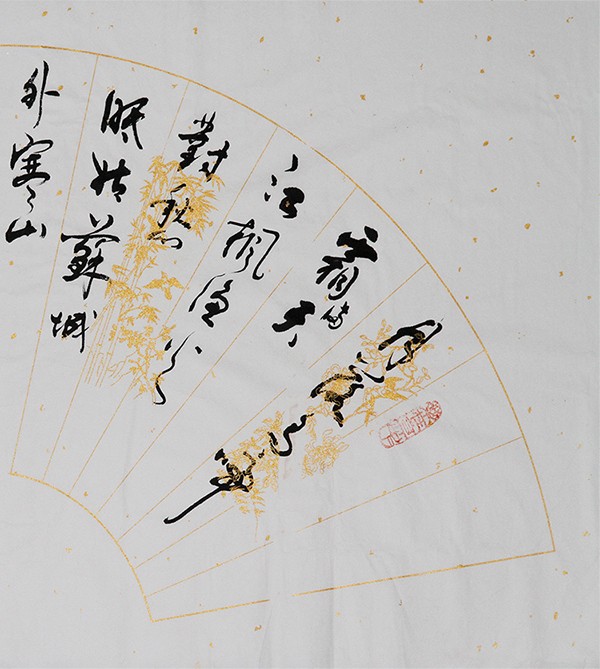 月落烏啼
霜滿天
江楓漁火
對愁
眠姑蘇城
外寒山